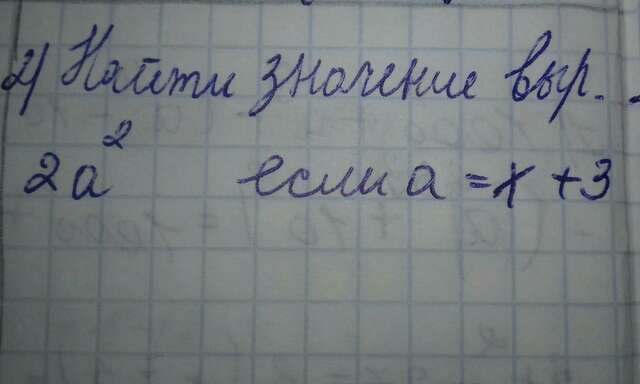 2) Найти значение выр.
2a² если a = x + 3